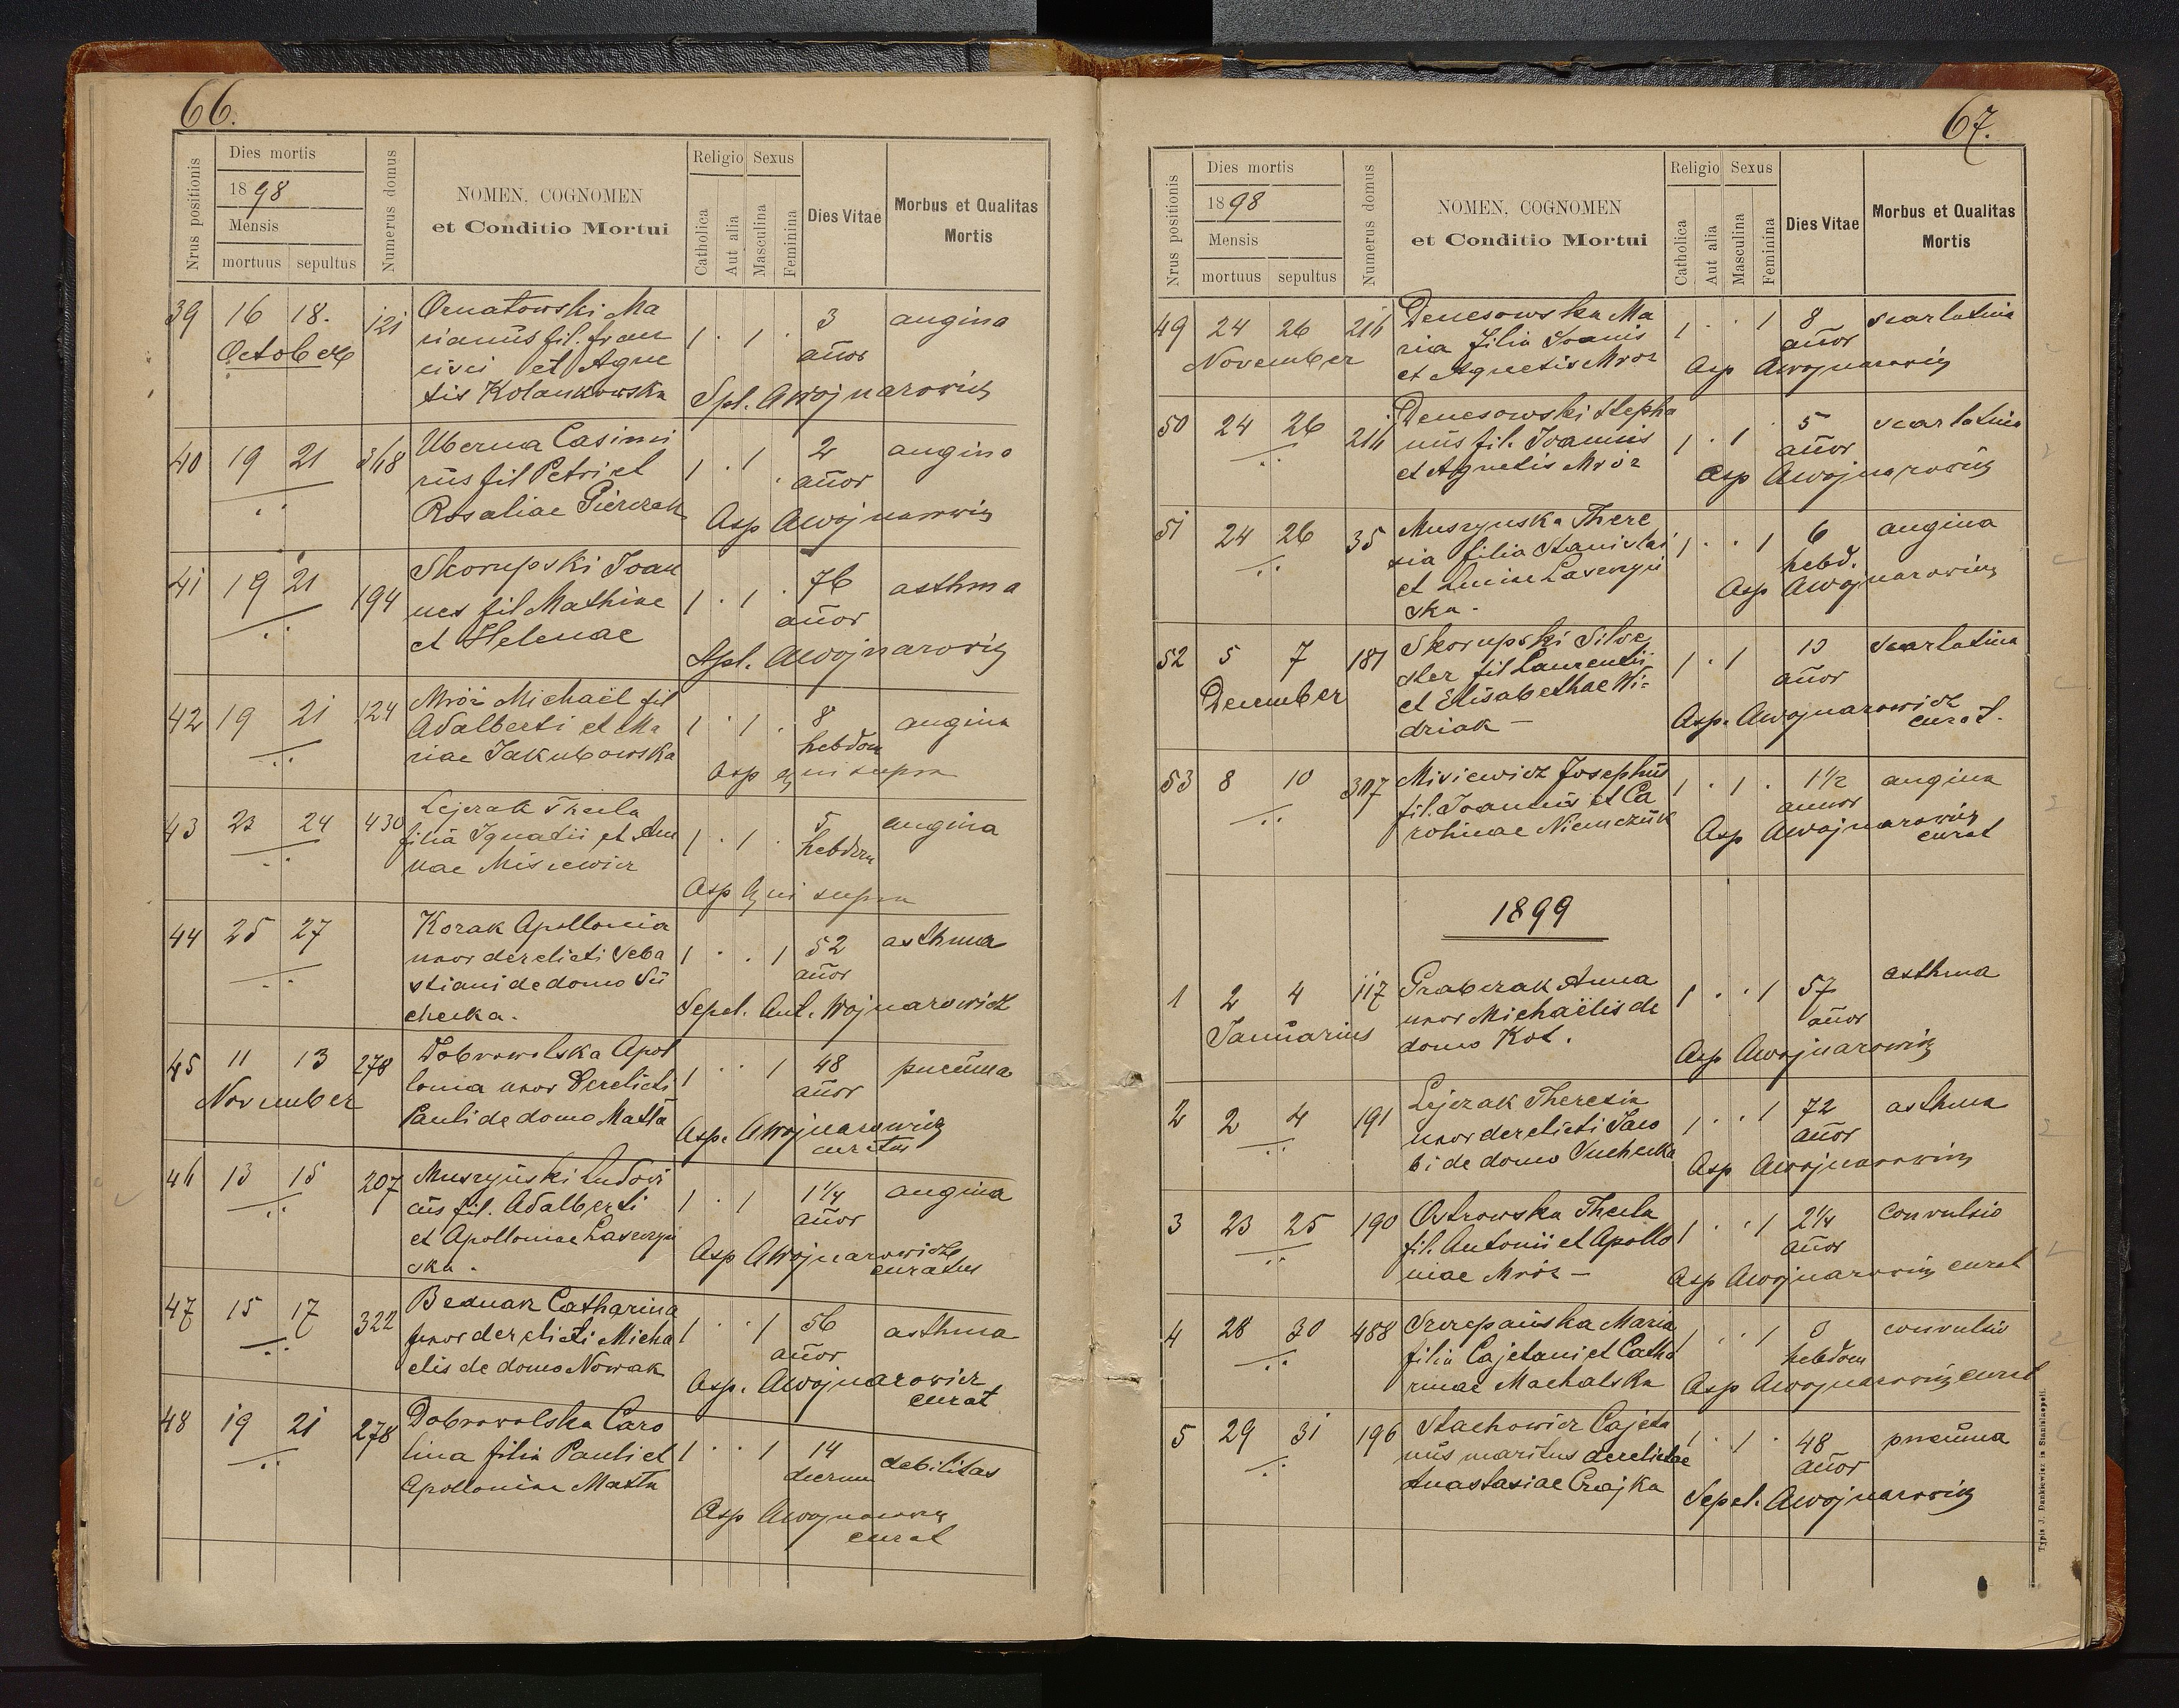 66.
Nrus positionis
Dies mortis
1898
Mensis
mortuus sepultus
Numerus domus
NOMEN, COGNOMEN
et Conditio Mortui
Religio Sexus
Catholica
Aut alia
Masculina
Feminina
Dies Vitae
Morbus et Qualitas
Mortis
39 16 18. 121 Ornatowski Ma 1 . 1 . 3 angina
October rianus fil. fran añor
cisci et Agne
tis Kolankowska Spl. AWojnarowicz
40 19 21 368 Uberna Casimi 1 . 1 . 2 angina
rus fil Petri et añor
Rosaliae Pierczak Asp AWojnarowicz
41 19 21 194 Skorupski Joan 1 . 1 . 76 asthma
nes fil Mathiae añor
et Helenae Spl. AWojnarowicz
42 19 21 124 Mróz Michaël fil 1 . 1 . 8 angina
Adalberti et Ma hebdom
riae Jakubowska Asp qui supra
43 23 24 430 Lejczak Thecla 1 . 1 . 5 angina
filia Ignatii et An hebdom
nae Misiewicz
Asp qui supra
44 25 27 Kozak Apollonia 1 . . 1 52 asthma
uxor derelicti Seba añor
stiani de domo Su
checka. Sepel. Ant. Wojnarowicz
45 11 13 278 Dobrowolska Apol 1 . . 1 48 pneuma
November lonia uxor derelicti añor
Pauli de domo Matta Asp. AWojnarowicz
curatus
46 13 15 207 Muszyński Ludovi 1 . 1 1¼ angina
cus fil. Adalberti añor
et Apolloniae Laszczyń Asp AWojnarowicz
ska. curatus
47 15 17 322 Bednarz Catharina 1 . . 1 56 asthma
uxor derelicti Micha añor
elis de domo Nowak Asp. AWojnarowicz
curat
48 19 21 278 Dobrowolska Caro 1 . . 1 14 debilitas
lina filia Pauli et dierum
Apolloniae Matta
Asp AWojnarowicz
curat
67.
Nrus positionis
Dies mortis
1898
Mensis
mortuus sepultus
Numerus domus
NOMEN, COGNOMEN
et Conditio Mortui
Religio Sexus
Catholica
Aut alia
Masculina
Feminina
Dies Vitae
Morbus et Qualitas
Mortis
49 24 26 216 Denesowska Ma 1 . . 1 8 scarlatina
November ria filia Joanis añor
et Agnetis Mroz Asp AWojnarowicz
50 24 26 216 Denesowski Stepha 1 . 1 . 5 scarlatina
nus fil. Joannis añor
et Agnetis Mróz Asp AWojnarowicz
51 24 26 35 Muszynska There 1 . . 1 6 angina
sia filia Stanislai hebd.
et Luciae Laszczyń Asp AWojnarowicz
ska.
52 5 7 181 Skorupski Silve 1 . 1 13 scarlatina
December ster fil Laurentii añor
et Elisabethae Wi= Asp. AWojnarowicz
driak — curat.
53 8 10 307 Misiewicz Josephus 1 . 1 . 1½ angina
fil. Joannis et Ca annor
rolinae Niemczuk Asp AWojnarowicz
curat
1899
1 2 4 117 Grabczak Anna 1 . . 1 57 asthma
Januarius uxor Michaëlis de añor
domo Kot. Asp AWojnarowicz
2 2 4 191 Lejczak Theresia 1 . . 1 72 asthma
uxor derelicti Jaco añor
bi de domo Suchecka Asp AWojnarowicz
3 23 25 190 Ostrowska Thecla 1 . . 1 2¼ convulsio
fil. Antonii et Apollo añor
niae Mróz — Asp AWojnarowicz curat
4 28 30 488 Szczepańska Maria 1 . . 1 3 convulsio
filia Cajetani et Catha hebdom
rinae Machalska Asp AWojnarowicz curat
5 29 31 196 Stachowicz Cajeta 1 . 1 . 48 pneuma
nus maritus derelictae añor
Anastasiae Czajka Sepel. AWojnarowicz
Typis J. Dankiewicz in Stanislaopoli.